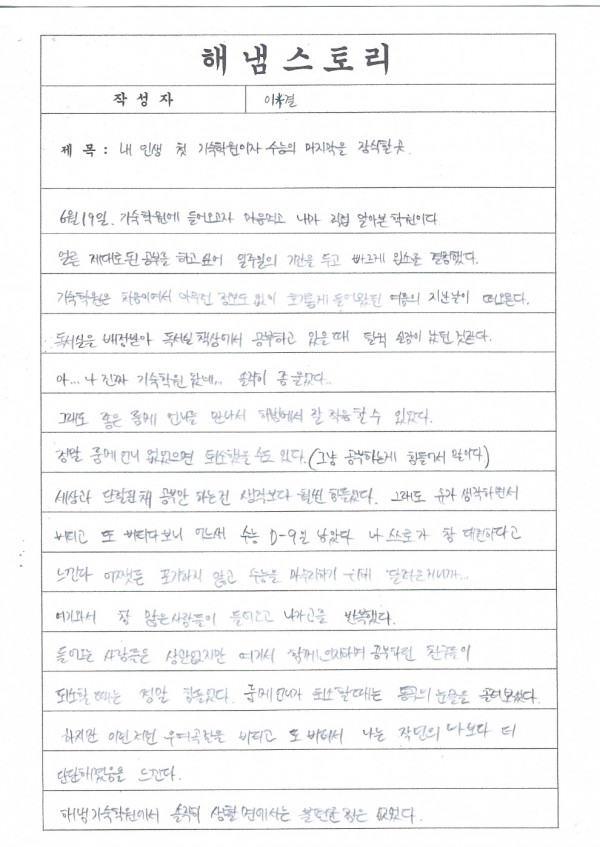 해냄스토리
작성자 이*결
제목: 내 인생 첫 기숙학원이자 수능의 마지막을 장식할 곳.
6월 19일. 기숙학원에 들어오고자 마음먹고 내가 직접 알아본 학원이다.
얼른 제대로 된 공부를 하고 싶어 일주일의 기간을 두고 빠르게 입소를 결정했다.
기숙학원은 처음이여서 아무런 정보도 없이 호기롭게 들어왔던 여름의 지난날이 떠오른다.
독서실을 배정받아 독서실 책상에서 공부하고 있을 때 탈적 실감이 났던 것 같다.
아... 나 진짜 기숙학원 왔네.. 솔직히 좀 울었다..
그래도 좋은 룸메 언니를 만나서 학원에서 잘 적응할 수 있었다.
정말 룸메 언니 없었으면 퇴소했을 수도 있다. (그냥 공부하는게 힘들어서 말이다.)
세상과 단절된 채 공부만 하는건 생각보다 훨씬 힘들었다. 그래도 슈가 생각하면서
버티고 또 버티다보니 어느새 수능 D-9일 남았다. 나 스스로가 참 대견하다고
느낀다. 어쨌든 포기하지 않고 수능을 마무리하기 위해 달려온거니까...
여기와서 참 많은 사람들이 들어오고 나가고를 반복했다.
들어오는 사람들은 상관없지만 여기서 함께 의지하며 공부하던 친구들이
퇴소할 때는 정말 힘들었다. 룸메언니가 퇴소할 때는 통곡의 눈물을 흘려보냈다.
하지만 이런저런 우여곡절을 버티고 또 버텨서 나는 작년의 나보다 더
단단해졌음을 느낀다.
해냄기숙학원에서 솔직히 생활 면에서는 불편한 점은 없었다.